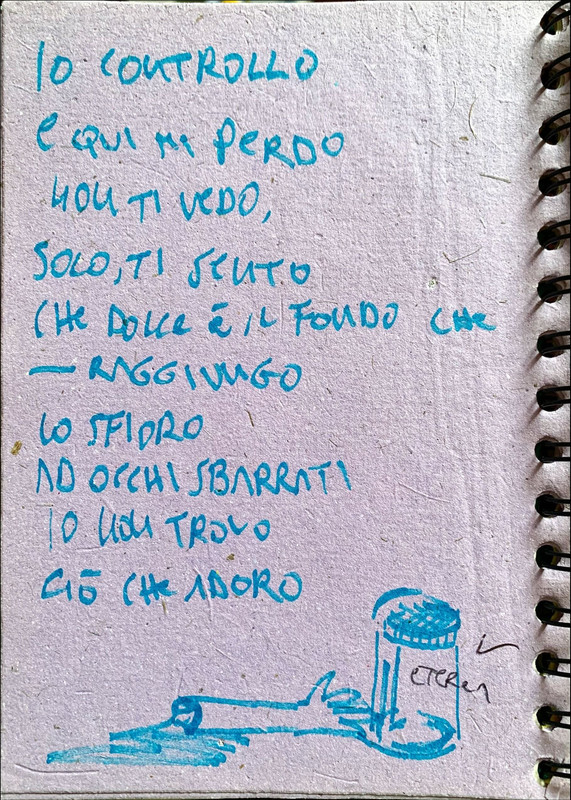 IO CONTROLLO
E QUI MI PERDO
NON TI VEDO,
SOLO, TI SENTO
CHE DOLCE È IL FONDO CHE
— RAGGIUNGO
LO SFIORO
AD OCCHI SBARRATI
IO NON TROVO
CIÒ CHE ADORO